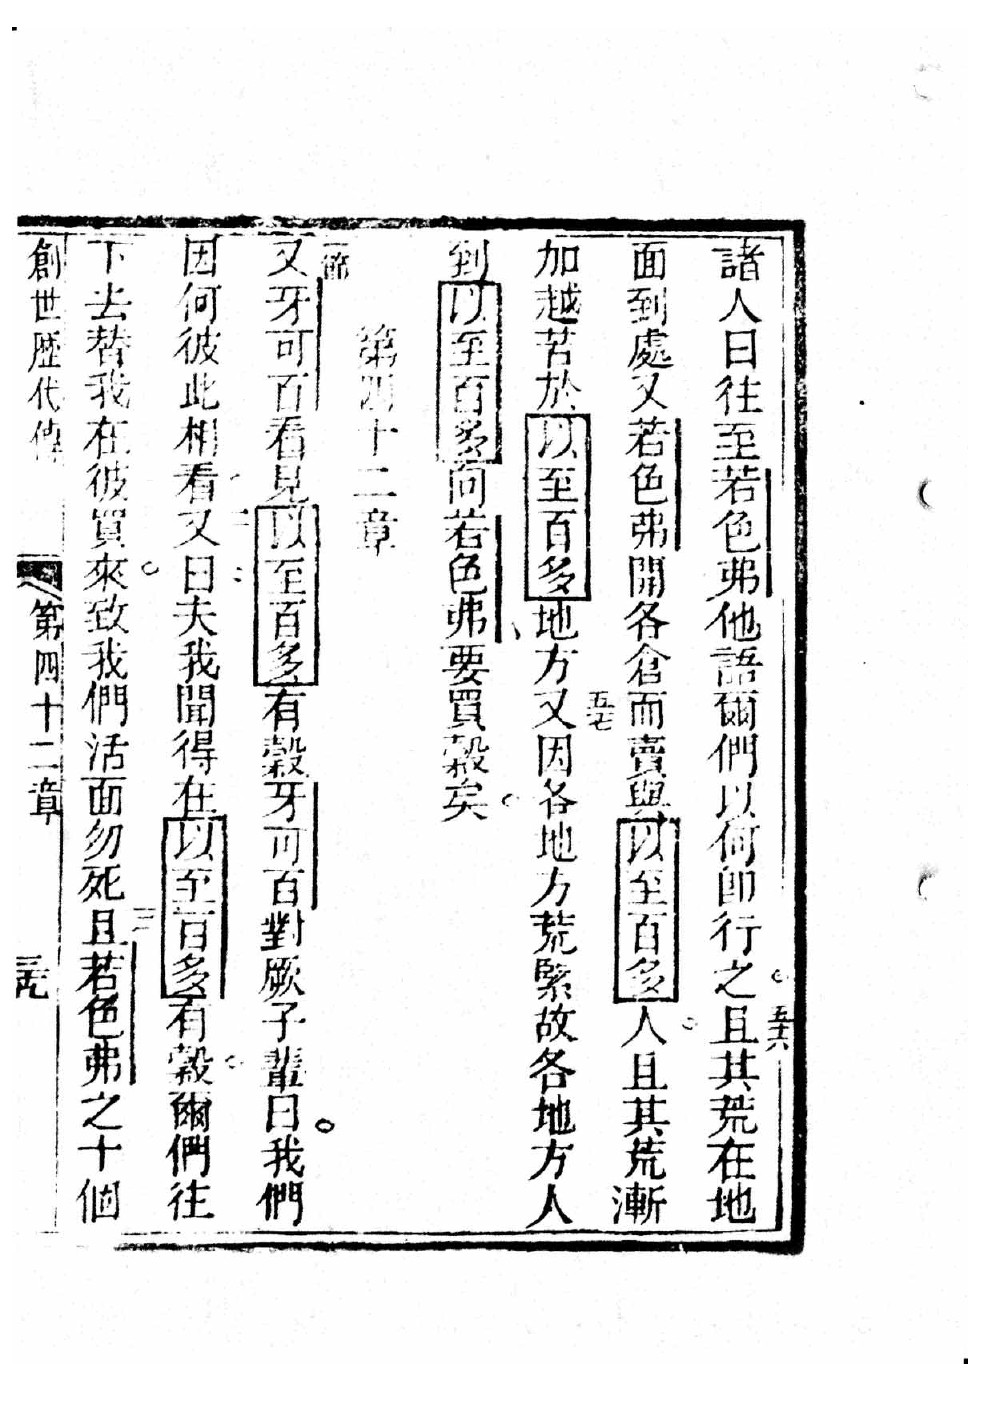 諸人曰往至若色弗他語爾們以何卽行之五十六且其荒在地
面到處又若色弗開各倉而賣與以至百多人且其荒漸
加越苦於以至百多地方五七又因各地方荒緊故各地方人
到以至百多向若色弗要買穀矣
第四十二章
一節又牙可百看見以至百多有穀牙可百對厥子輩曰我們
因何彼此相看二又曰夫我聞得在以至百多有穀爾們往
下去替我在彼買來致我們活而勿死三且若色弗之十個
創世歷代傳 第四十二章